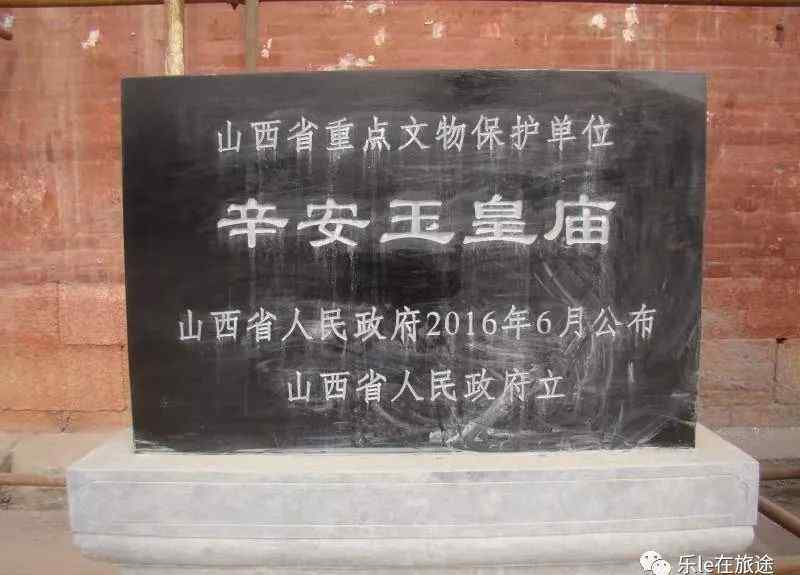 山西省重点文物保护单位
辛安玉皇庙
山西省人民政府2016年6月公布
山西省人民政府立
乐le在旅途